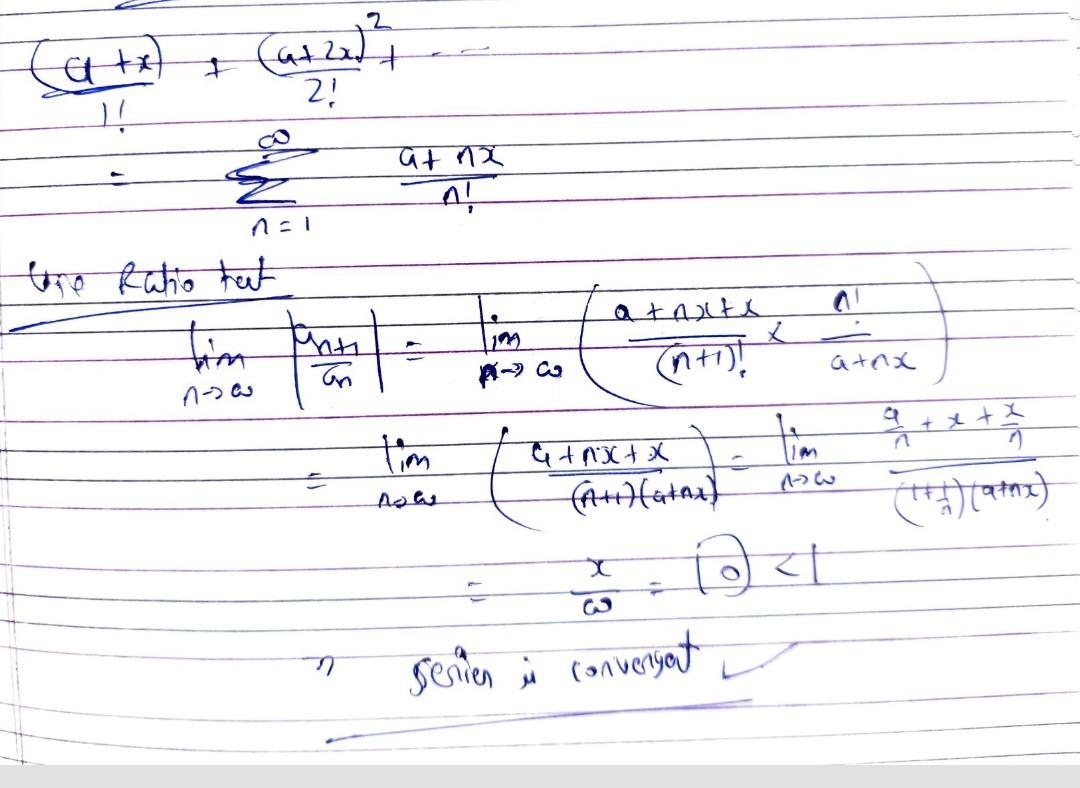 (a+x)/1! + (a+2x)²/2! + ----
= ∞ Σ n=1 a+nx/n!
Use Ratio test
lim n→∞ |an+1/an| = lim n→∞ (a+nx+x/(n+1)! × n!/a+nx)
= lim n→∞ (a+nx+x/(n+1)(a+nx)) = lim n→∞ a/n + x + x/n/(1+1/n)(a+nx)
= x/∞ = 0 < 1
⇒ series is convergent ✓